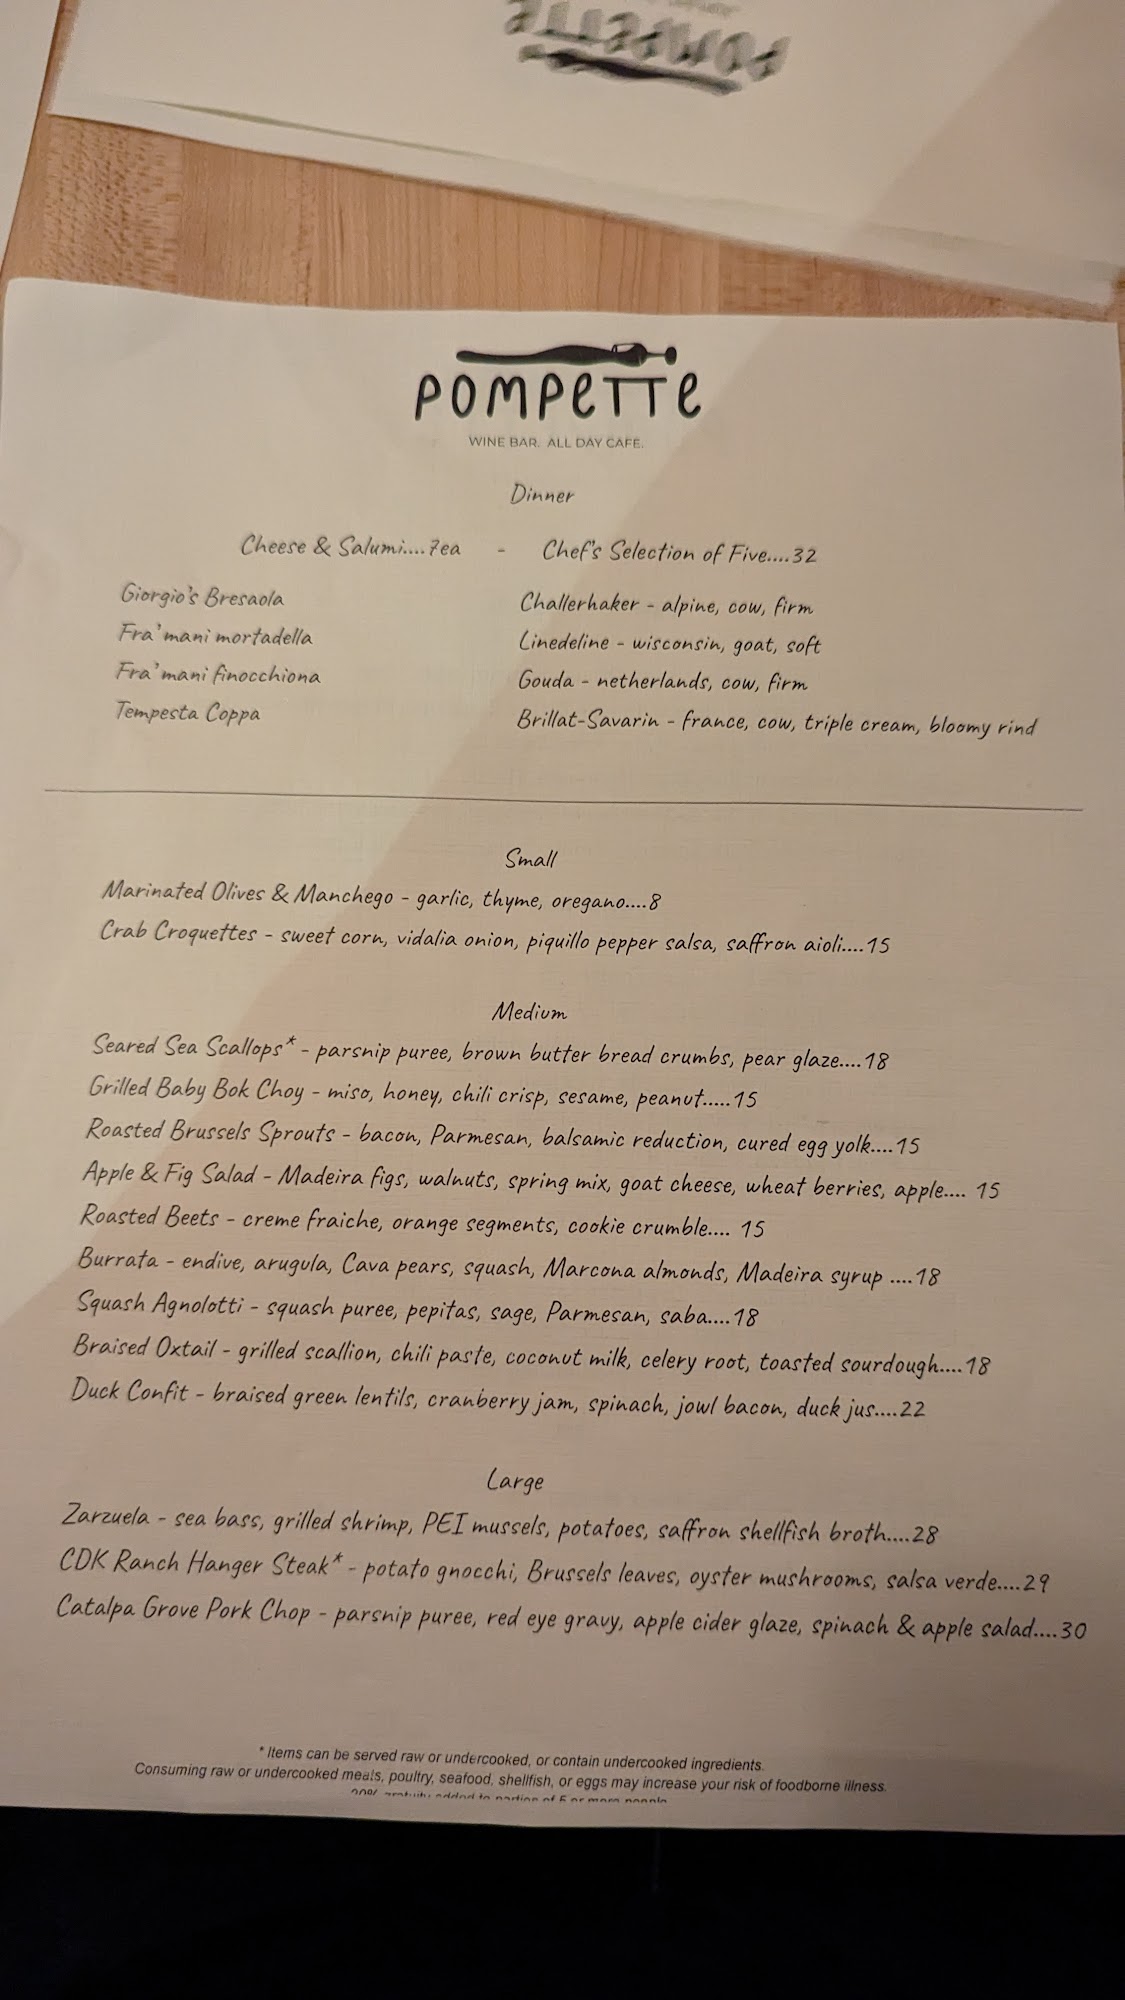 POMPETTE
POMPETTE
WINE BAR. ALL DAY CAFE.
Dinner
Cheese & Salumi....7ea - Chef's Selection of Five....32
Giorgio's Bresaola
Fra'mani mortadella
Fra'mani finocchiona
Tempesta Coppa
Challerhaker - alpine, cow, firm
Linedeline - wisconsin, goat, soft
Gouda - netherlands, cow, firm
Brillat-Savarin - france, cow, triple cream, bloomy rind
Small
Marinated Olives & Manchego - garlic, thyme, oregano....8
Crab Croquettes - sweet corn, vidalia onion, piquillo pepper salsa, saffron aioli....15
Medium
Seared Sea Scallops* - parsnip puree, brown butter bread crumbs, pear glaze....18
Grilled Baby Bok Choy - miso, honey, chili crisp, sesame, peanut.....15
Roasted Brussels Sprouts - bacon, Parmesan, balsamic reduction, cured egg yolk....15
Apple & Fig Salad - Madeira figs, walnuts, spring mix, goat cheese, wheat berries, apple.... 15
Roasted Beets - creme fraiche, orange segments, cookie crumble.... 15
Burrata - endive, arugula, Cava pears, squash, Marcona almonds, Madeira syrup ....18
Squash Agnolotti - squash puree, pepitas, sage, Parmesan, saba....18
Braised Oxtail - grilled scallion, chili paste, coconut milk, celery root, toasted sourdough....18
Duck Confit - braised green lentils, cranberry jam, spinach, jowl bacon, duck jus....22
Large
Zarzuela - sea bass, grilled shrimp, PEI mussels, potatoes, saffron shellfish broth....28
CDK Ranch Hanger Steak* - potato gnocchi, Brussels leaves, oyster mushrooms, salsa verde....29
Catalpa Grove Pork Chop - parsnip puree, red eye gravy, apple cider glaze, spinach & apple salad....30
* Items can be served raw or undercooked, or contain undercooked ingredients.
Consuming raw or undercooked meats, poultry, seafood, shellfish, or eggs may increase your risk of foodborne illness.
20% gratuity added to parties of 5 or more people